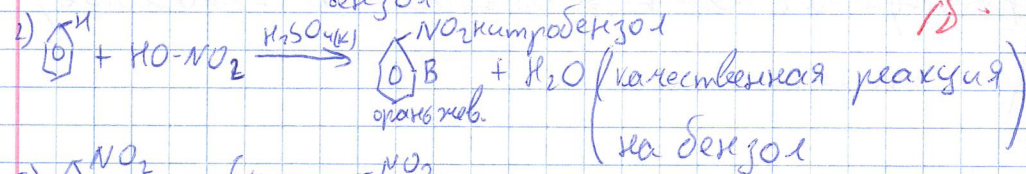 бензол
2) H + HO-NO₂ H₂SO₄(к) → NO₂ нитробензол B + H₂O (качественная реакция
оранжев.
на бензол)
NO₂ NO₂